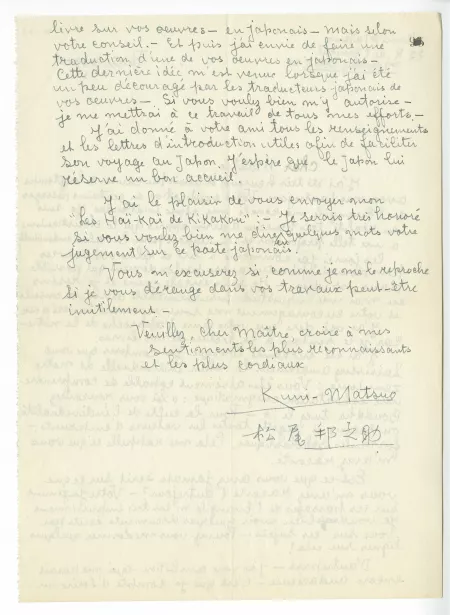 livre sur vos oeuvres — en japonais — mais selon
votre conseil. — Et puis j'ai envie de faire une
traduction d'une de vos oeuvres en japonais —
Cette dernière idée m'est venue lorsque j'ai été
un peu découragé par les traducteurs japonais de
vos oeuvres — Si vous voulez bien m'y autorise —
je me mettrai à ce travail de tous mes efforts. —
J'ai donné à votre ami tous les renseignements
et les lettres d'introduction utiles afin de faciliter
son voyage au Japon. J'espère que le Japon lui
réserve un bon accueil.
J'ai le plaisir de vous envoyer mon
"Les Haï-Kaï de Kikakou" : — Je serais très honoré
si vous voulez bien me dire quelques mots votre
jugement sur ce poète japonais.
Vous m'excuserez si, comme je me le reproche
Si je vous dérange dans vos travaux peut-être
inutilement —
Veuillez, cher Maître, croire à mes
sentiments les plus reconnaissants
et les plus cordiaux
Kuni-Matsuo
松尾邦之助